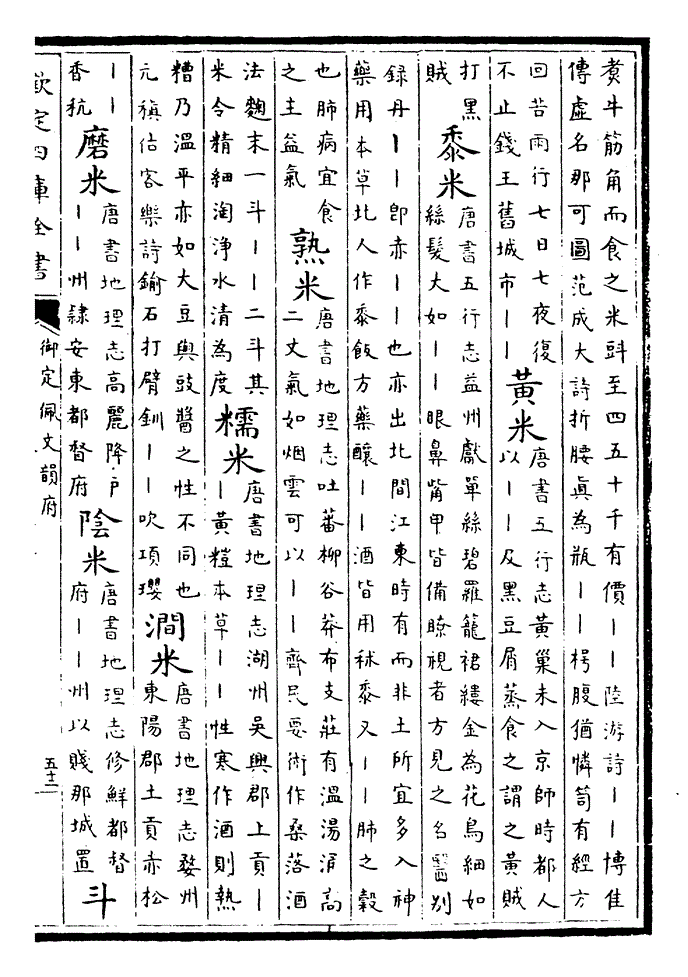 煑牛筋角而食之米㪷至四五十千有價丨丨陸游詩丨丨博隹
傳虛名那可圖范成大詩折腰真為瓶丨丨枵腹猶憐笥有經方
回苦雨行七日七夜復
不止錢王舊城市丨丨
黃米
唐書五行志黃巢未入京師時都人
以丨丨及黑豆屑蒸食之謂之黃賊
打黑
賊
黍米
唐書五行志益州獻單絲碧羅籠裙縷金為花鳥細如
絲髮大如丨丨眼鼻觜甲皆備瞭視者方見之名醫别
録丹丨丨卽赤丨丨也亦出北間江東時有而非土所宜多入神
藥用本草北人作黍飯方藥釀丨丨酒皆用秫黍又丨丨肺之榖
也肺病宜食
之主益氣
熟米
唐書地理志吐蕃柳谷莽布支莊有溫湯涓高
二丈氣如烟雲可以丨丨齊民要術作桑落酒
法麴末一斗丨丨二斗其
米令精細淘淨水清為度
糯米
唐書地理志湖州吳興郡上貢丨
丨黃䊗本草丨丨性寒作酒則熟
糟乃溫平亦如大豆與豉醬之性不同也
元稹估客樂詩鍮石打臂釧丨丨吹項瓔
澗米
唐書地理志婺州
東陽郡土貢赤松
丨丨
香秔
磨米
唐書地理志高麗降户
丨丨州隸安東都督府
陰米
唐書地理志修鮮都督
府丨丨州以賤那城置
斗
欽定四庫全書
御定佩文韻府
五十二